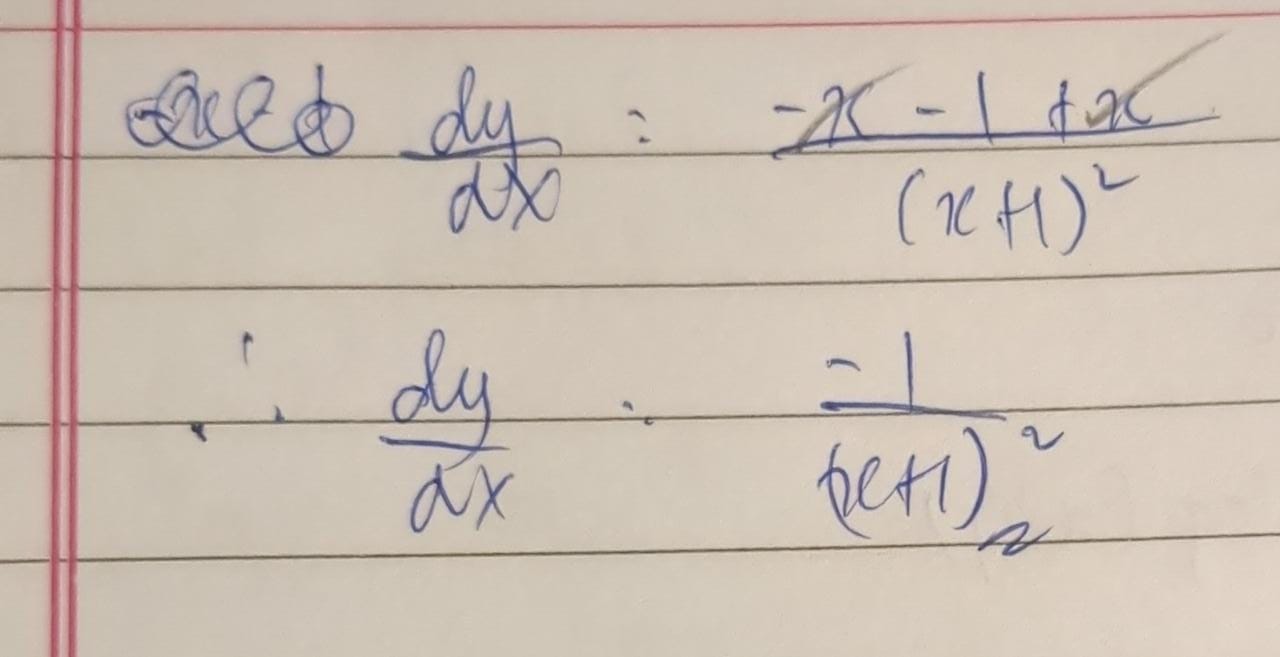 dy/dx = (-x - 1 + x)/(x+1)²
∴ dy/dx = -1/(x+1)²